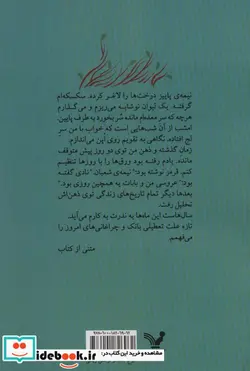 نیمه‌ی پاییز درخت‌ها را لاغر کرده. سکسکه‌ام
گرفته. یک لیوان نوشابه می‌ریزم و می‌گذارم
هرچه که سر معده‌ام مانده سُر بخورد به طرف پایین.
امشب از آن شب‌هایی ست که خواب با من سرِ
لج افتاده. نگاهی به تقویم روی آپن می‌اندازم.
زمان گذشته و ذهن من توی دو روز پیش متوقف
مانده. یادم رفته بود ورق‌ها را با روزها تنظیم
کنم. قرمز نوشته بود: "نیمه‌ی شعبان" نادی گفته
بود: "عروسی من و بابات یه همچین روزی بود."
بعدها دیگر تمام تاریخ‌های زندگی توی ذهن‌اش
تحلیل رفت.
سال‌هاست این ماه‌ها به ندرت به کارم می‌آید.
تازه علت تعطیلی بانک و چراغانی‌های امروز را
می‌فهمم.
متنی از کتاب
مشاهده و خرید این کتاب در:
iranketab.ir